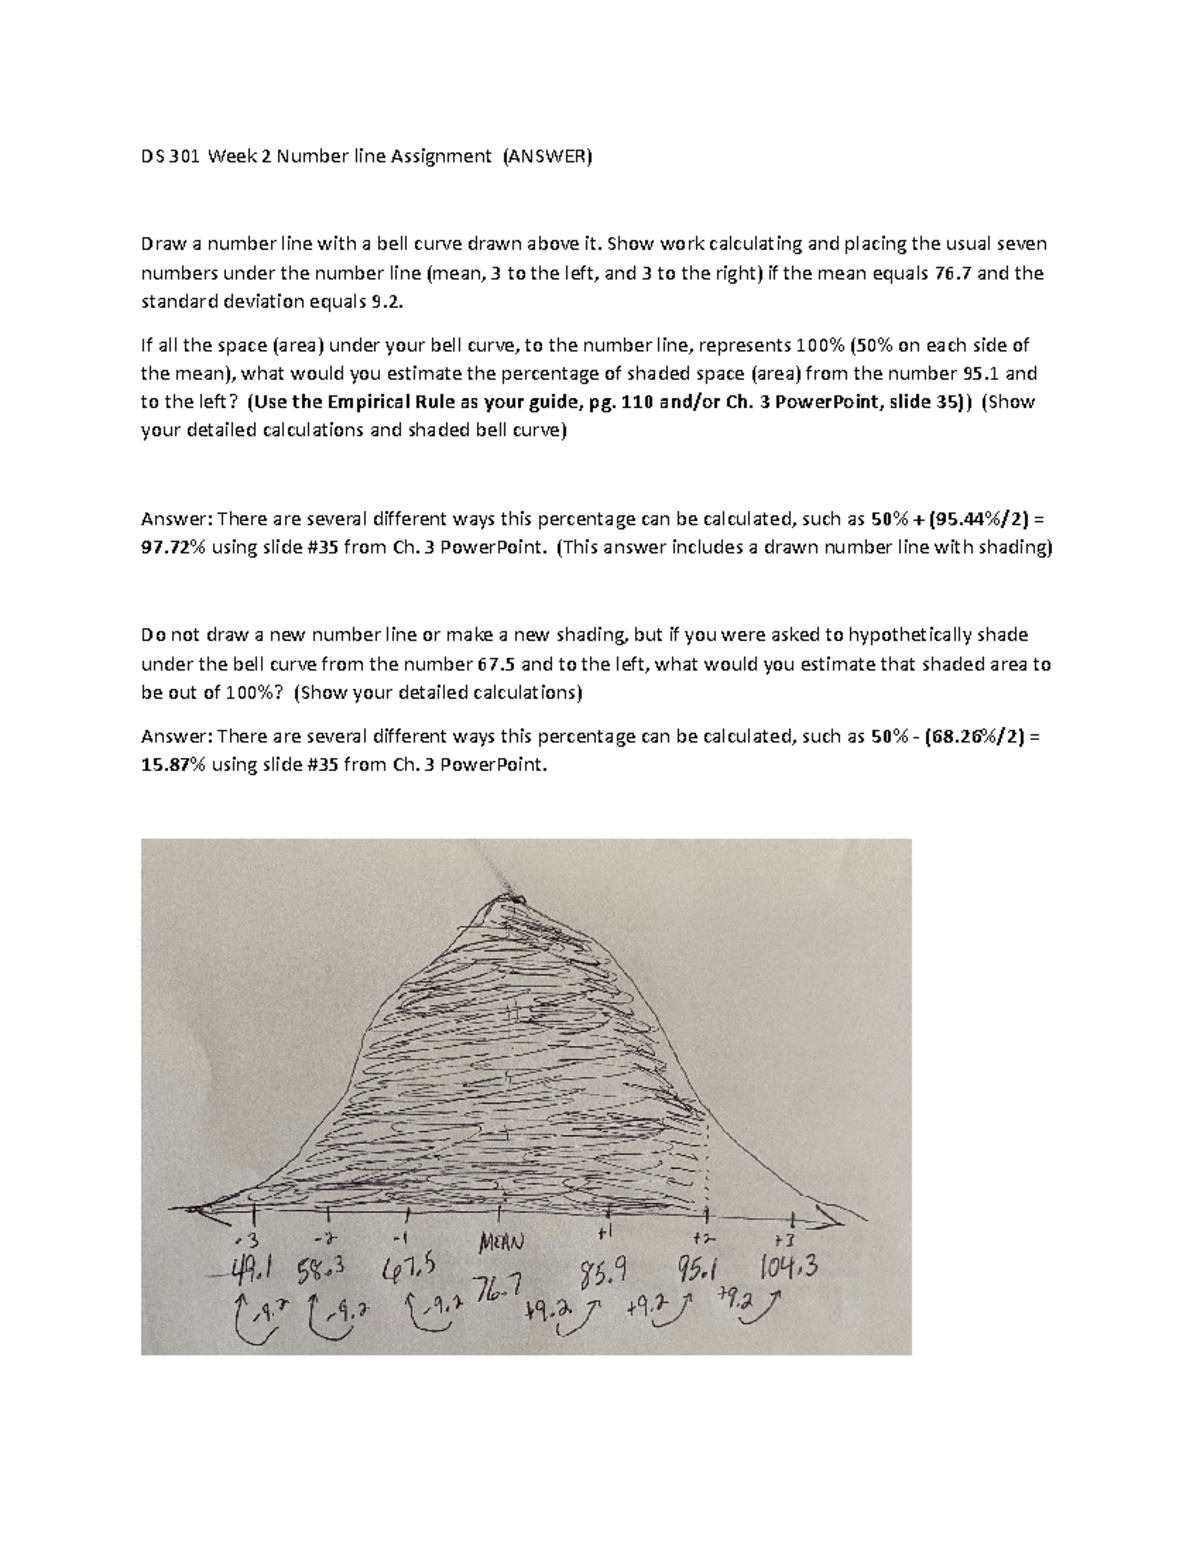 DS 301 Week 2 Number line Assignment (ANSWER)
Draw a number line with a bell curve drawn above it. Show work calculating and placing the usual seven
numbers under the number line (mean, 3 to the left, and 3 to the right) if the mean equals 76.7 and the
standard deviation equals 9.2.
If all the space (area) under your bell curve, to the number line, represents 100% (50% on each side of
the mean), what would you estimate the percentage of shaded space (area) from the number 95.1 and
to the left? (Use the Empirical Rule as your guide, pg. 110 and/or Ch. 3 PowerPoint, slide 35)) (Show
your detailed calculations and shaded bell curve)
Answer: There are several different ways this percentage can be calculated, such as 50% + (95.44%/2) =
97.72% using slide #35 from Ch. 3 PowerPoint. (This answer includes a drawn number line with shading)
Do not draw a new number line or make a new shading, but if you were asked to hypothetically shade
under the bell curve from the number 67.5 and to the left, what would you estimate that shaded area to
be out of 100%? (Show your detailed calculations)
Answer: There are several different ways this percentage can be calculated, such as 50% - (68.26%/2) =
15.87% using slide #35 from Ch. 3 PowerPoint.
-3 -2 -1 MEAN +1 +2 +3
49.1 58.3 67.5 76.7 85.9 95.1 104.3
-9.2 -9.2 -9.2 +9.2 +9.2 +9.2